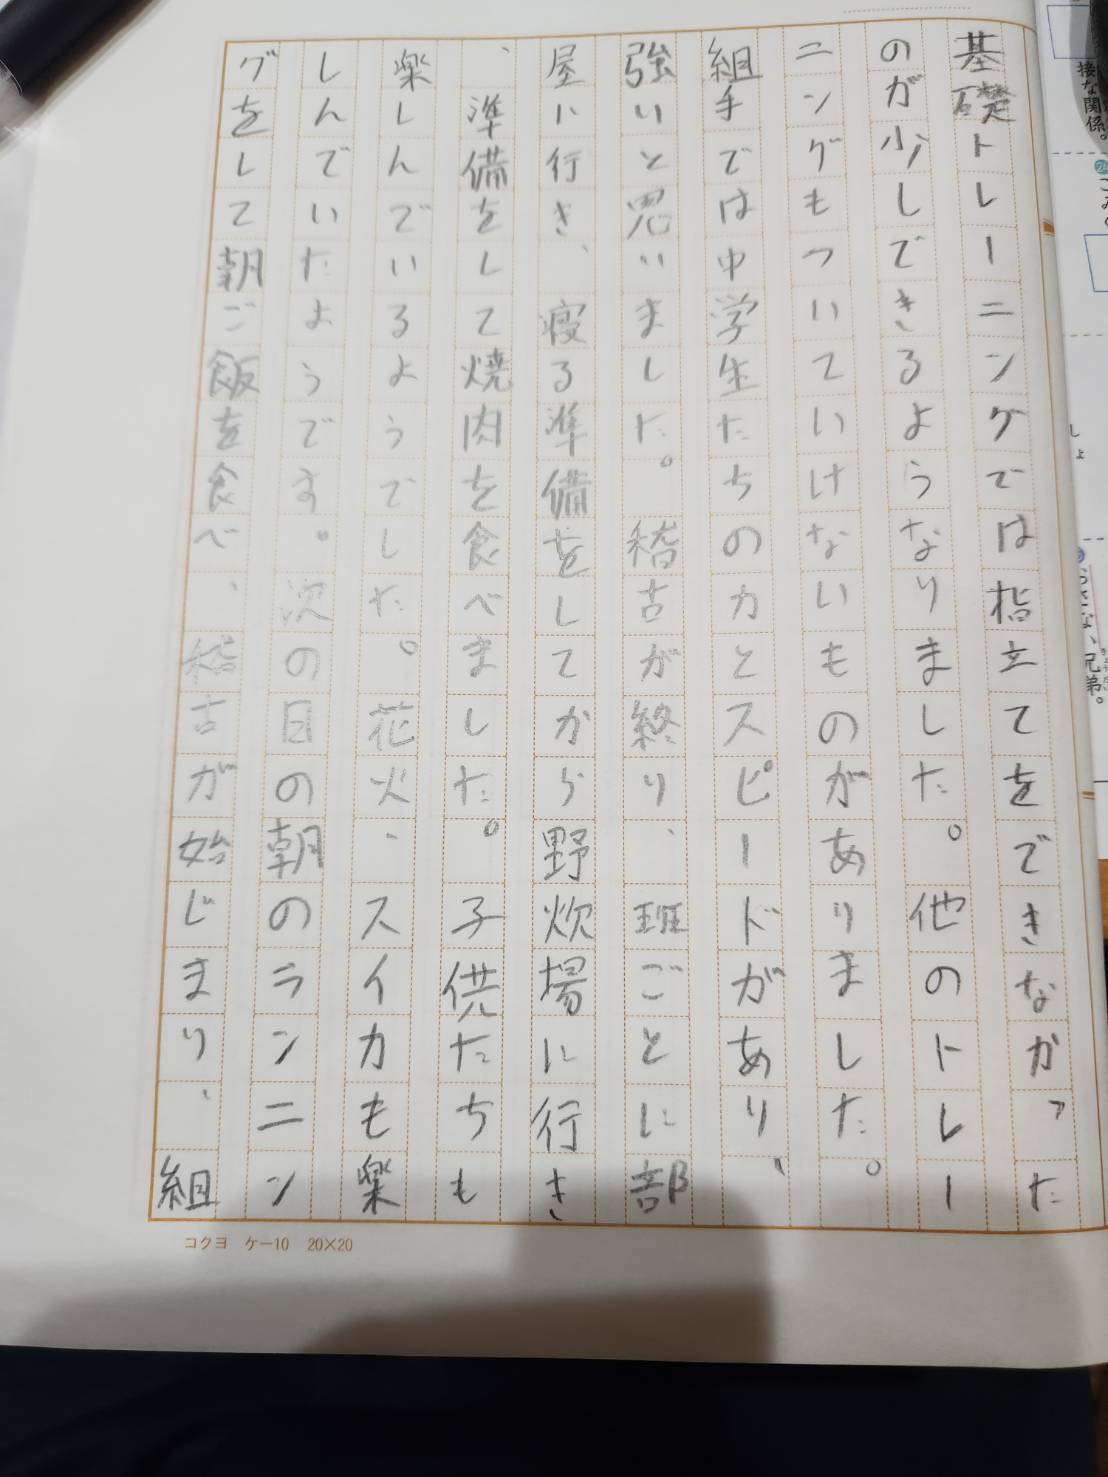 基礎トレーニングでは指立てをできなかった
のが少しできるようなりました。他のトレー
ニングもついていけないものがありました。
組手では中学生たちの力とスピードがあり、
強いと思いました。稽古が終り、班ごとに部
屋に行き、寝る準備をしてから野炊場に行き
、準備をして焼肉を食べました。子供たちも
楽しんでいるようでした。花火、スイカも楽
しんでいたようです。次の日の朝のランニン
グをして朝ご飯を食べ、稽古が始じまり、組
コクヨ ケー10 20×20
接な関係。
しょ
兄弟。